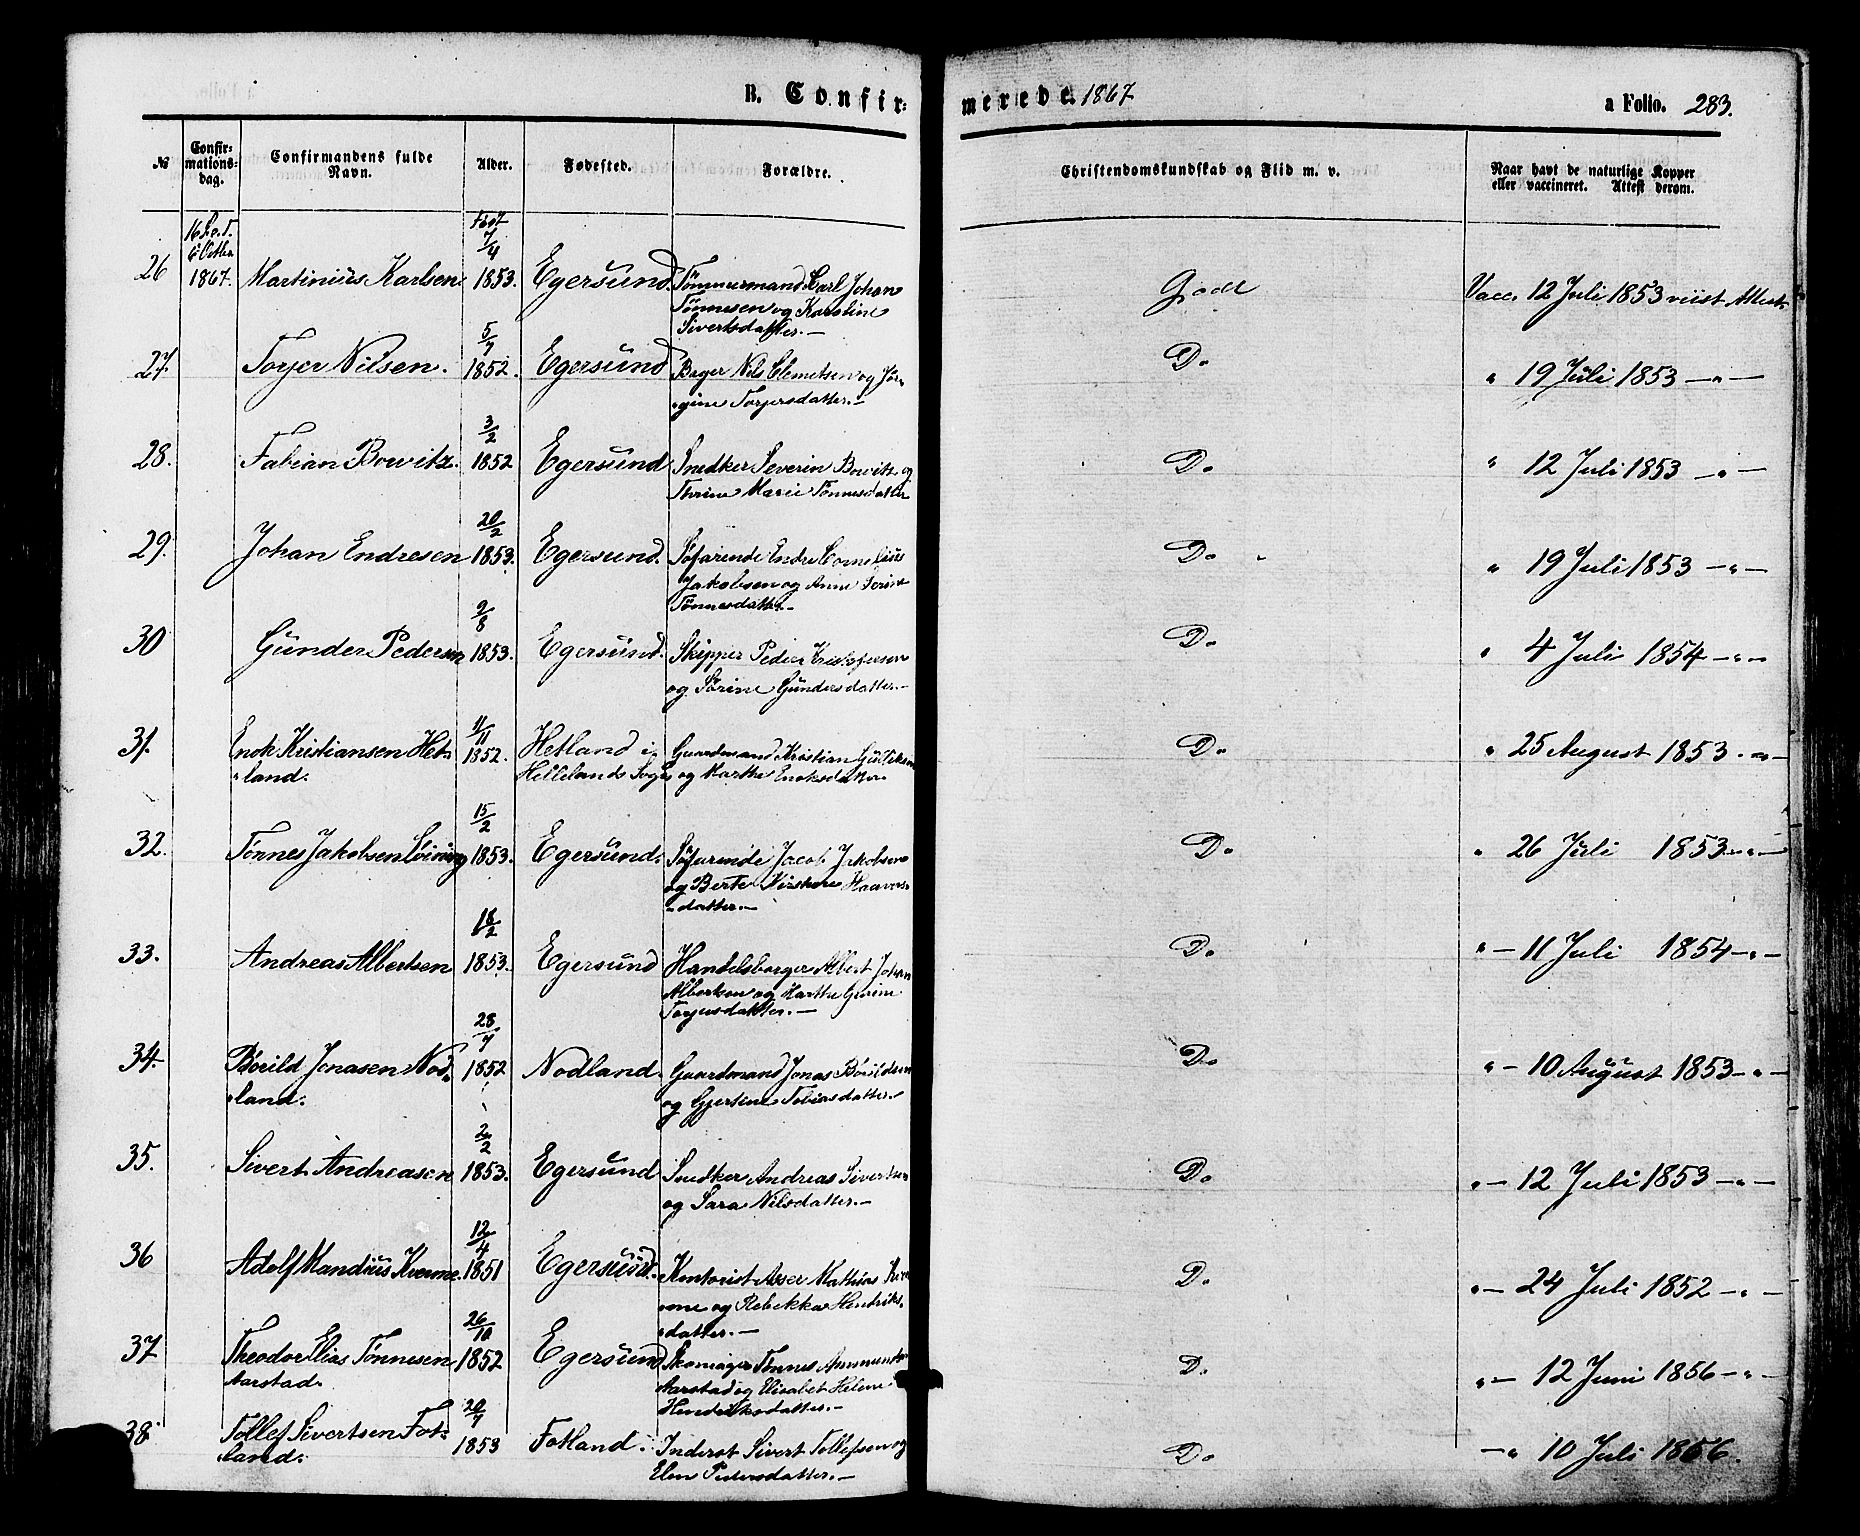 B. Confir-
merede. 1867
a Folio. 283.
№
Confir-
mations-
dag.
Confirmandens fulde
Navn.
Alder.
Fødested.
Forældre.
Christendomskundskab og Flid m. v.
Naar havt de naturlige Kopper
eller vaccineret. Attest derom.
1867.
26 Martinius Karlsen 7/4 1853. Egersund. Tømmermand Carl Johan
Tønnesen og Karstine
Sivertsdatter.—
God
Vacc. 12 Juli 1853 viist Attest
27. Torjer Nilsen. 5/7 1852. Egersund Bager Nils Clemetsen og Jør-
gine Torjersdatter.—
Do
" 19 Juli 1853 —"—
28. Fabian Bowitz. 3/2 1852 Egersund Snedker Severin Bowitz og
Marie Tønnesdatter
Do
" 12 Juli 1853 —"—
29. Johan Endresen 20/2 1853. Egersund. Søfarende Endre Cornelius
Jakobsen og Anne
Tønnesdatter.—
Do
" 19 Juli 1853 —"—
30 Gunder Pedersen 2/8 1853. Egersund. Skipper Peder
og Sørine Gundersdatter.—
Do
" 4 Juli 1854 —"—
31. Enok Kristiansen Het-
land. 11/11 1852. Hetland i
Hellelands Sogn Gaardmand Kristian
og Marthe Enoksdatter
Do
" 25 August 1853. —"—
32. Tønnes Jakobsen 15/2 1853. Egersund. Søfarende Jacob Jakobsen
og Berte Haavors-
datter.—
Do
" 26 Juli 1853 —"—
33. Andreas Albertsen 18/2 1853. Egersund Handelsborger Albert Johan
Albertsen og Marthe Gurine
Torjersdatter.—
Do
"— 11 Juli 1854 —"—
34. Bårild Jonasen Nod-
land. 28/7 1852 Nodland. Gaardmand Jonas Bårildsen
og Gjertine Tobiasdatter.—
Do
"— 10 August 1853 —"—
35. Sivert Andreasen 2/2 1853. Egersund Snedker Andreas Sivertsen
og Sara Nilsdatter.—
Do
"— 12 Juli 1853 —"—
36 Adolf Mandius Kverme. 12/4 1851 Egersund. Kontorist Asser Mathias
og Rebekka Hendriks-
datter.—
Do
"— 24 Juli 1852 —"—
37 Theodor Elias Tønnesen
Aarstad. 26/10 1852 Egersund Skomager Tønnes
Aarstad og Elisabet Helene
Hendriksdatter.—
D.
"— 12 Juni 1856 —"—
38 Tollef Sivertsen Fot-
land. 20/7 1853 Fotland. Inderst Sivert Tollefsen og
Elen Pedersdatter.—
Do
—" 10 Juli 1866.